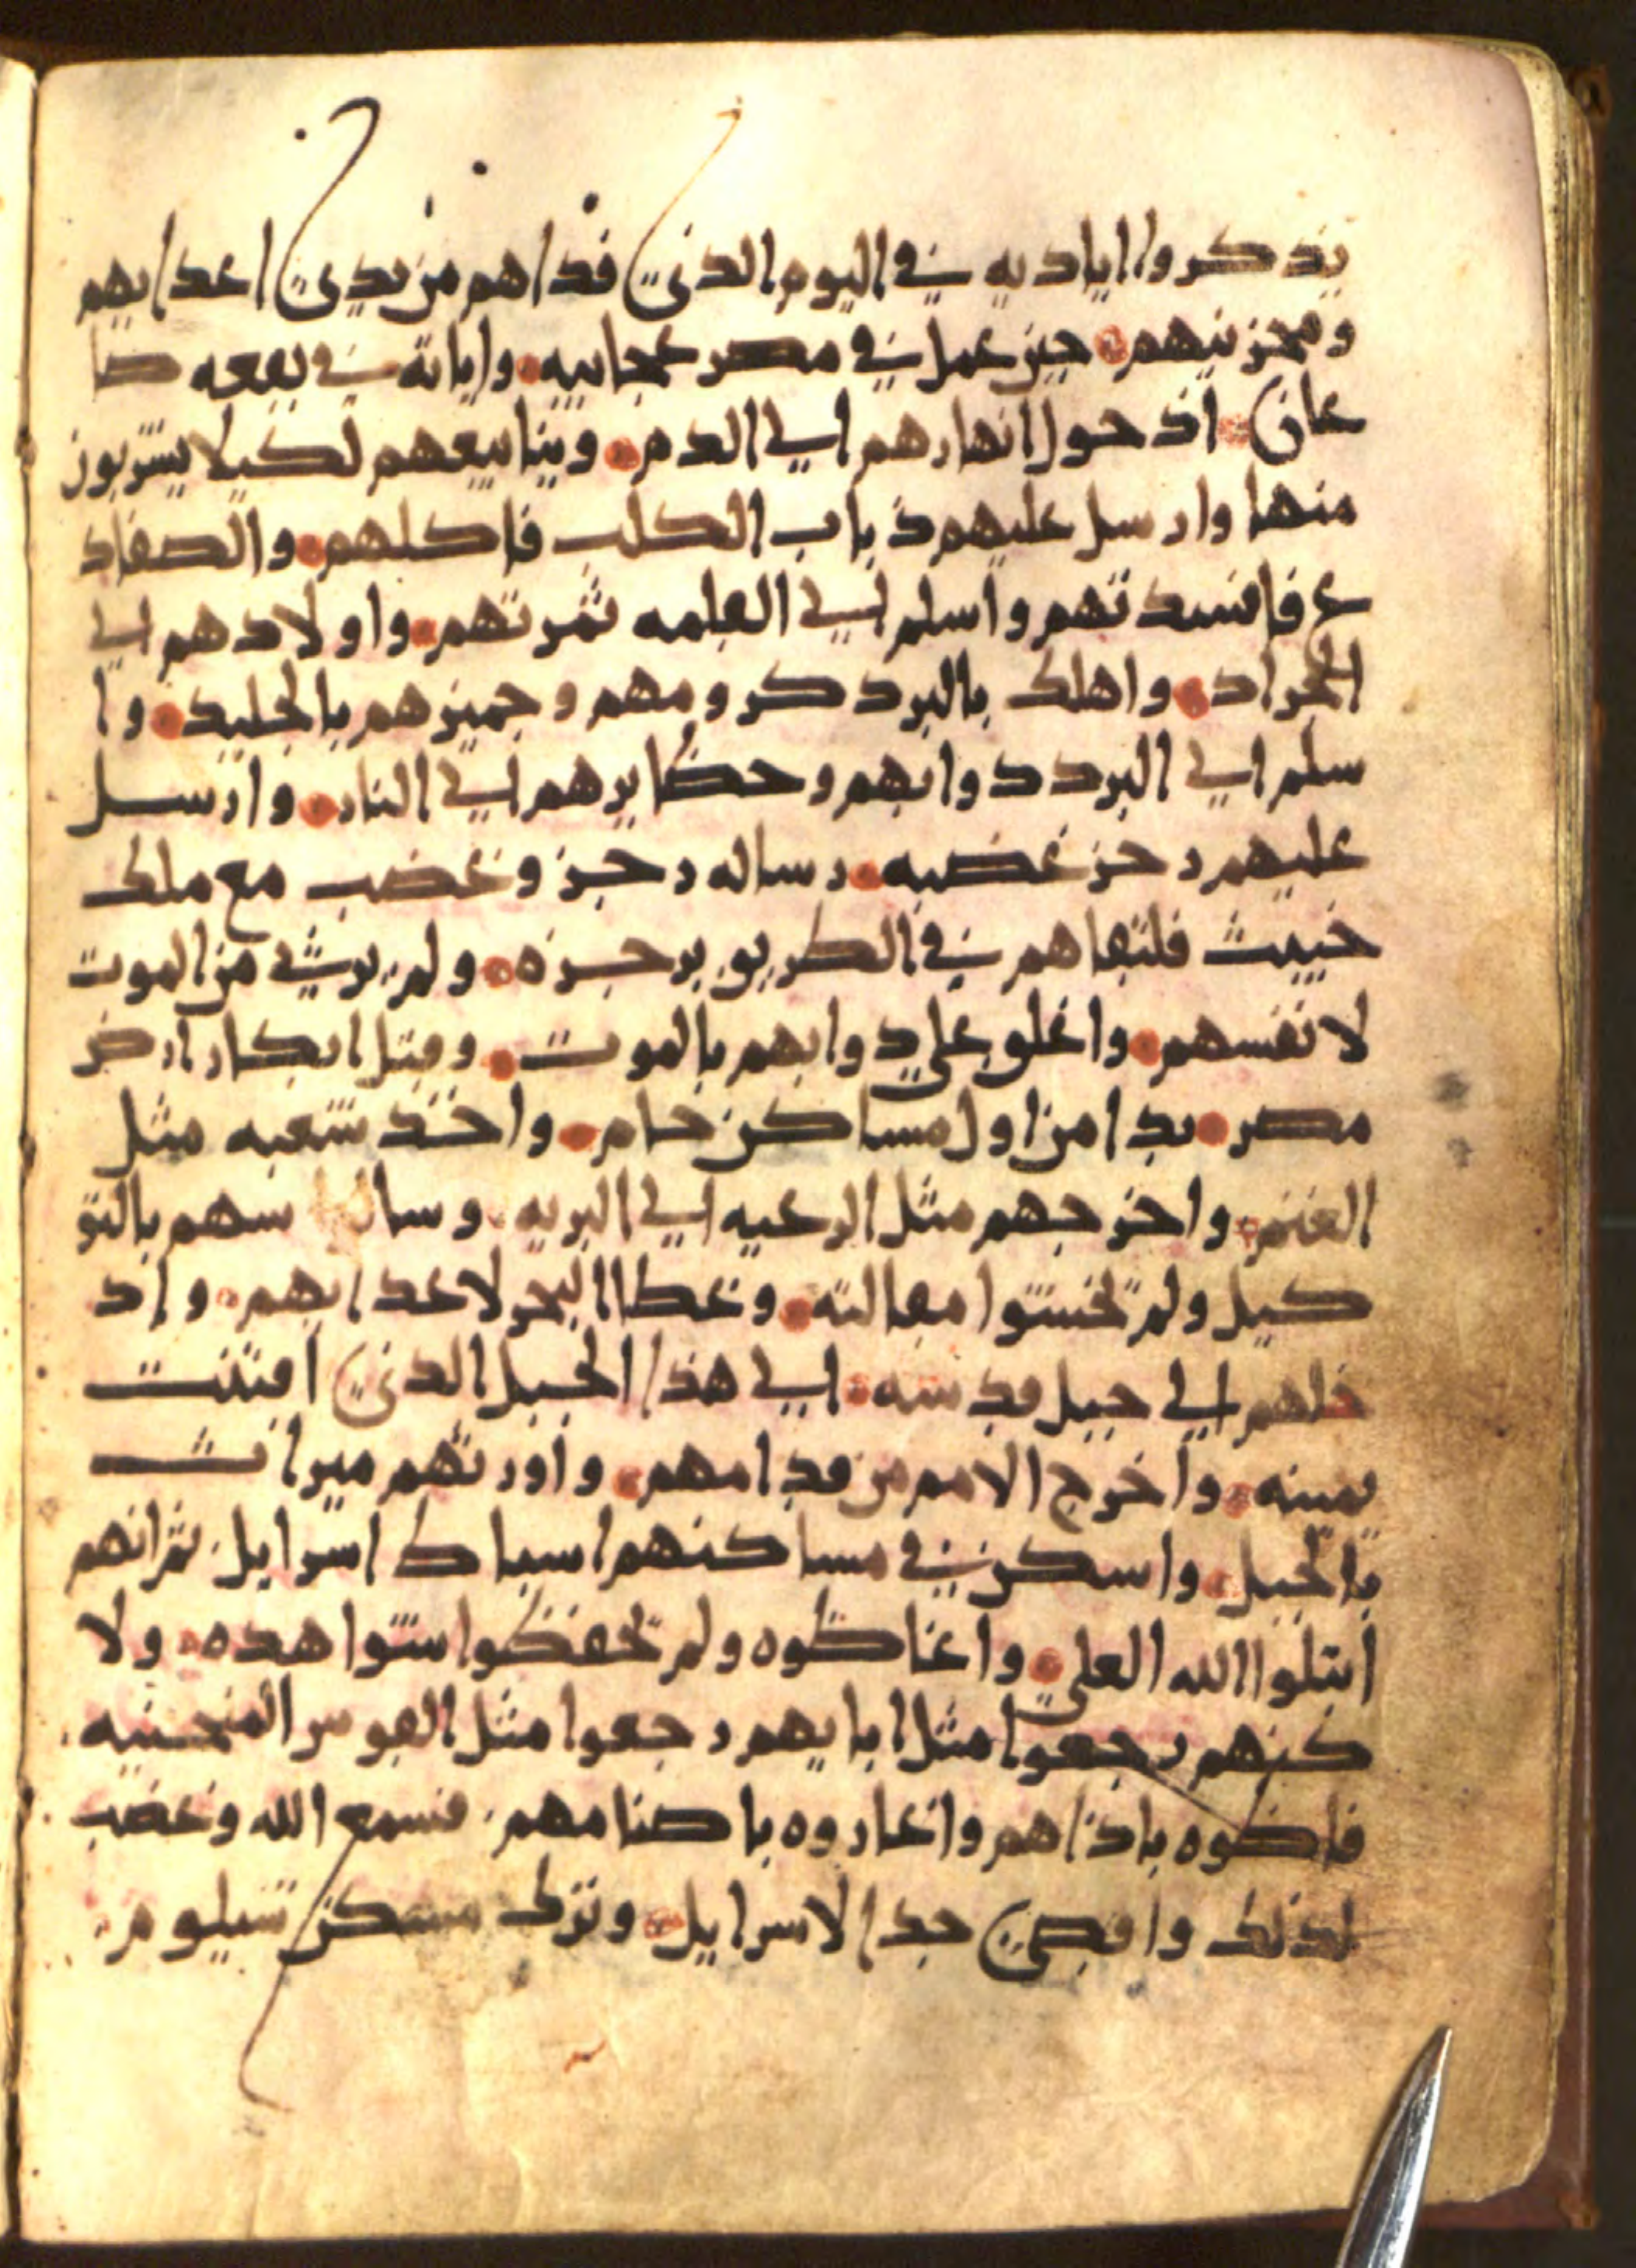 يذكروا اياديه في اليوم الذي فداهم من يدي اعدايهم
ومحزنيهم حين عمل في مصر عجايبه واياته في بقعه صا
عان اذ حول انهارهم الي الدم وينابيعهم لكيلا يشربون
منها وارسل عليهم ذباب الكلب فاكلهم والصفاد
ع فافسدتهم واسلم الي القلمه ثمرتهم واولادهم الي
الجراد واهلك بالبرد كرومهم وجميزهم بالجليد وا
سلم الي البرد دوابهم وحظايرهم الي النار وارسل
عليهم رجز غضبه رساله رجز وغضب مع ملك
خبيث فلتقاهم في الطريق برجزه ولم يرثي من الموت
لانفسهم واغلق علي دوابهم بالموت وقتل ابكار ارض
مصر بدا من اول مساكن حام واخذ شعبه مثل
الغنم واخرجهم مثل الرعيه الي البريه وسا سهم بالتو
كيل ولم تخشوا مقالته وغطا البحر لاعدايهم واد
خلهم الي جبل قدسه الي هذا الجبل الذي اقتنت
يمينه واخرج الامم من قدامهم واورثهم ميراث
بالحبل واسكن في مساكنهم اسباط اسرايل ثم انهم
ابتلوا الله العلي واغاظوه ولم تحفظوا شواهده ولا
كنهم رجعوا مثل ابايهم رجعوا مثل القوس المنحنيه
فاظوه باذاهم واغاروه باصنامهم فسمع الله وغضب
لذلك واقصي جدا لاسرايل وترك مسكن شيلوم